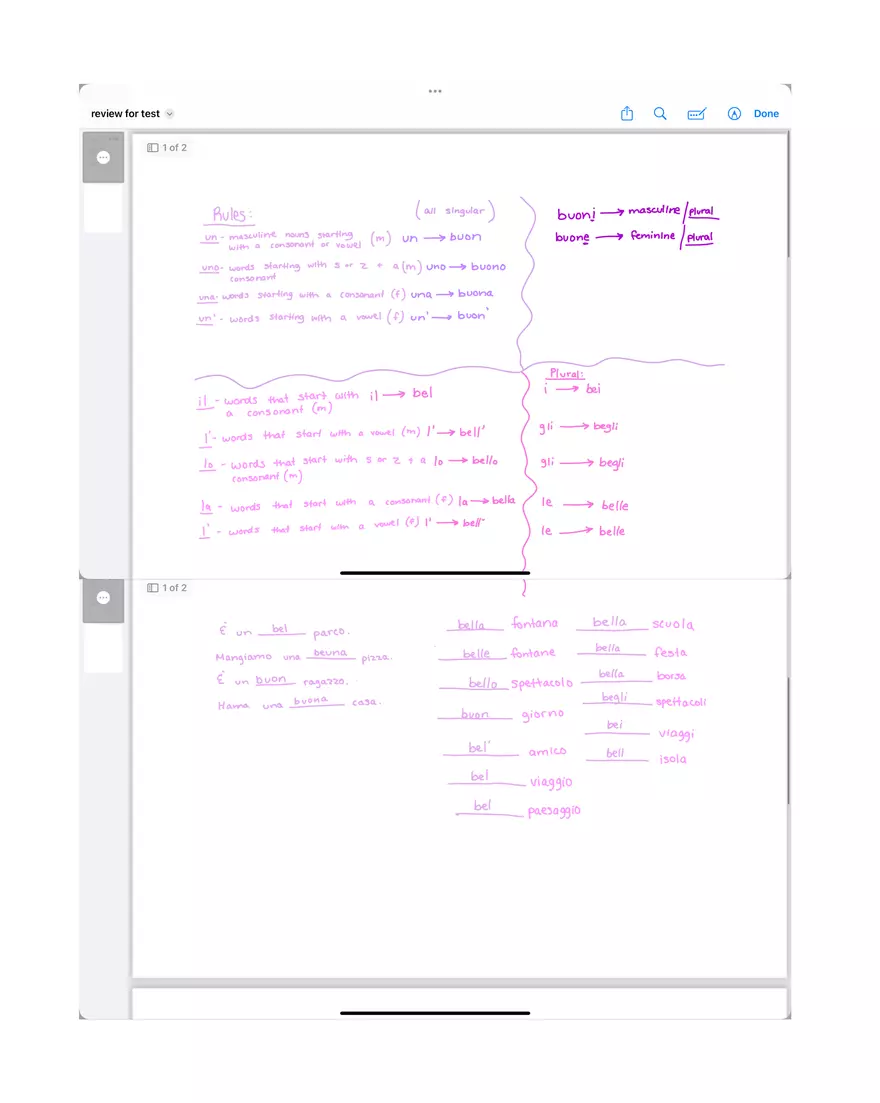 review for test
Done
1 of 2
Rules:
(all singular)
un - masculine nouns starting
with a consonant or vowel (m) un → buon
uno- words starting with s or z + a (m) uno → buono
consonant
una- words starting with a consonant (f) una → buona
un' - words starting with a vowel (f) un' → buon'
buoni → masculine/plural
buone → feminine/plural
il - words that start with il → bel
a consonant (m)
l'- words that start with a vowel (m) l' → bell'
lo - words that start with s or z + a lo → bello
consonant (m)
la - words that start with a consonant (f) la → bella
l' - words that start with a vowel (f) l' → bell'
Plural:
i → bei
gli → begli
gli → begli
le → belle
le → belle
1 of 2
É un bel parco.
Mangiamo una beuna pizza.
É un buon ragazzo.
Hama una buona casa.
bella fontana
belle fontane
bello spettacolo
buon giorno
bel' amico
bel viaggio
bel paesaggio
bella scuola
bella festa
bella borsa
begli spettacoli
bei viaggi
bell isola